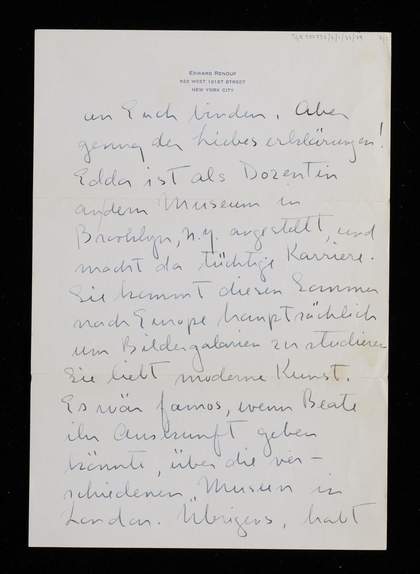 EDWARD RENOUF
NEW YORK CITY
an Euch binden. Aber
genug der Liebeserklärungen!
Edda ist als Dozentin
an dem Museum in
Brooklyn, N.Y. angestellt, und
macht da tüchtige Karriere.
Sie kommt diesen Sommer
nach Europe hauptsächlich
um Bildergalerien zu studieren
Sie liebt moderne Kunst.
Es wär famos, wenn Beate
ihr Auskunft geben
könnte, über die ver-
schiedenen Museen in
London. Übrigens, habt